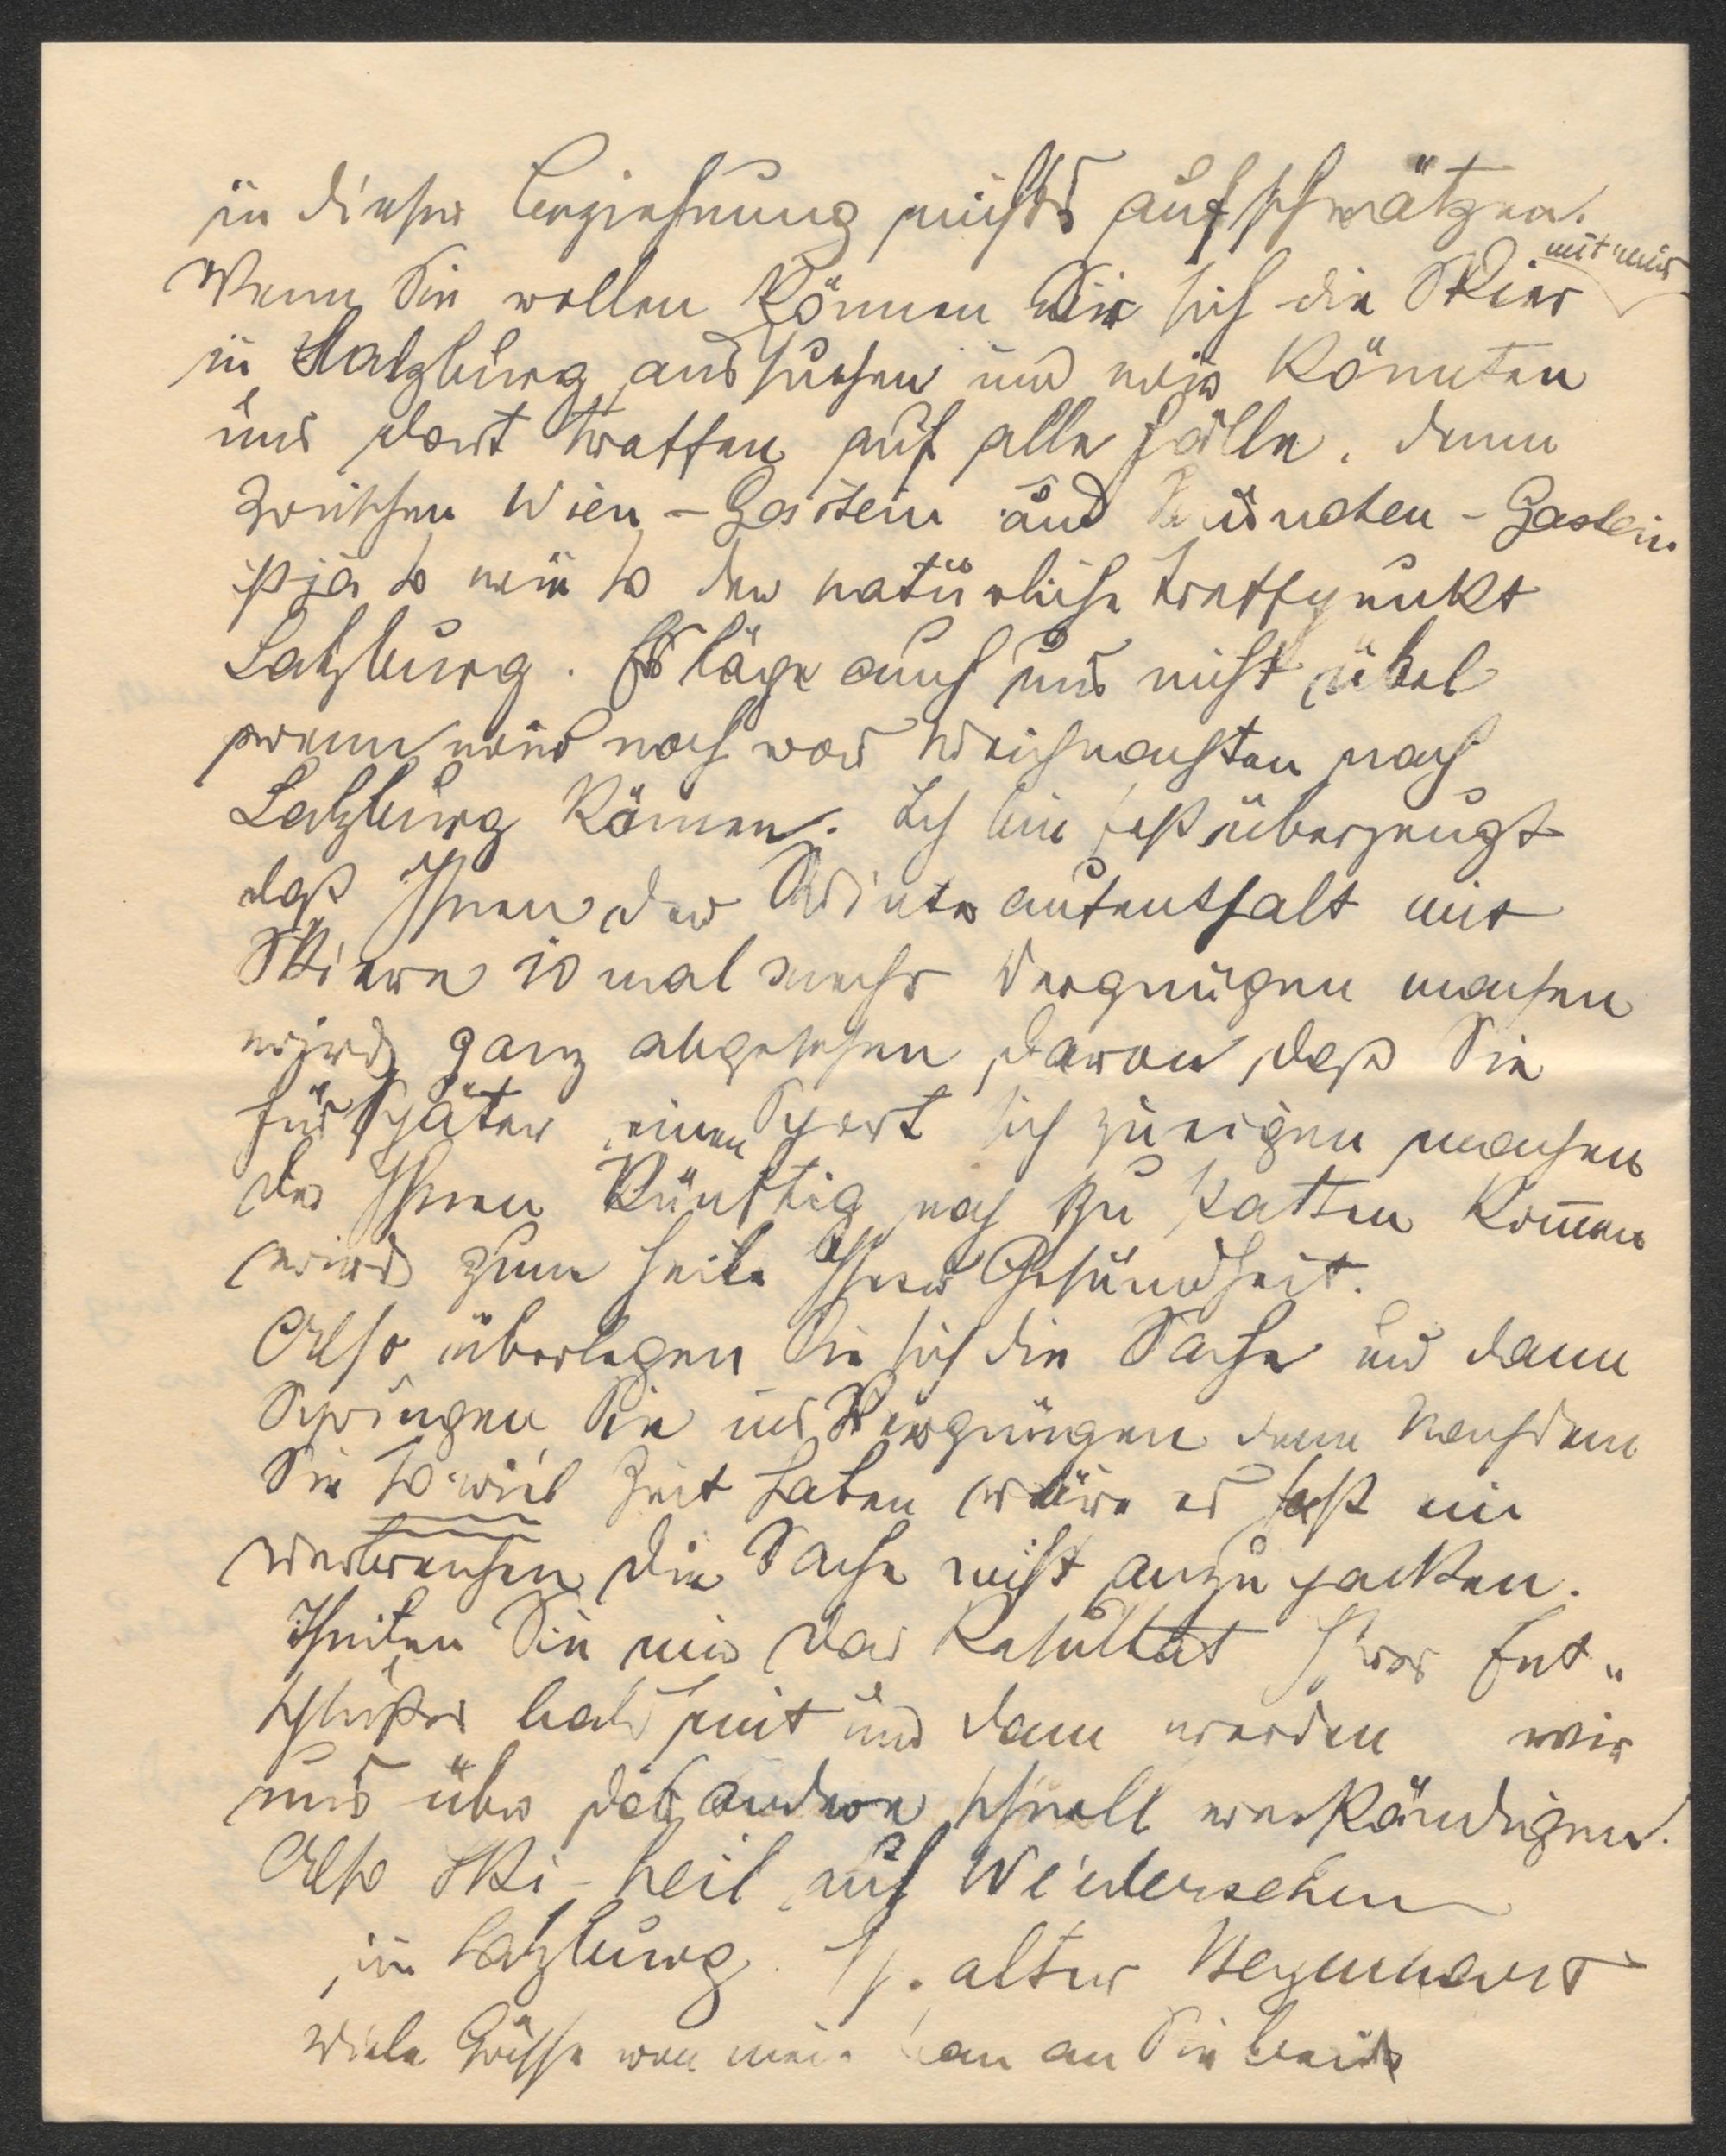 in dieser Beziehung nichts aufschwätzen.
Wenn Sie wollen können Sie sich die Skier mit mir
in Salzburg aussuchen und wir könnten
uns dort treffen auf alle Fälle. denn
zwischen Wien – Gastein und München – Gastein
ist ja so wie so der natürliche Treffpunkt
Salzburg. Es läge auch uns nicht übel
wenn wir noch vor Weihnachten nach
Salzburg kämen. Ich bin fest überzeugt
daß Ihnen der Winteraufenthalt mit
Skiern 10 mal mehr Vergnügen machen
wird ganz abgesehen davon, daß Sie
für später einen Sport sich zu eigen machen
der Ihnen künftig noch zu statten kom̄en
wird zum Heile Ihrer Gesundheit.
Also überlegen Sie sich die Sache und dann
Springen Sie ins Vergnügen denn nachdem
Sie so viel Zeit haben wäre es fast ein
Verbrechen die Sache nicht anzupacken.
Theilen Sie mir das Resultat Ihres Ent„
schlußes bald mit und dann werden wir
uns über das andere schnell verständigen.
Also Ski-heil auf Wiedersehen
in Salzburg. Ihr alter
Viele Grüße von an Sie beide